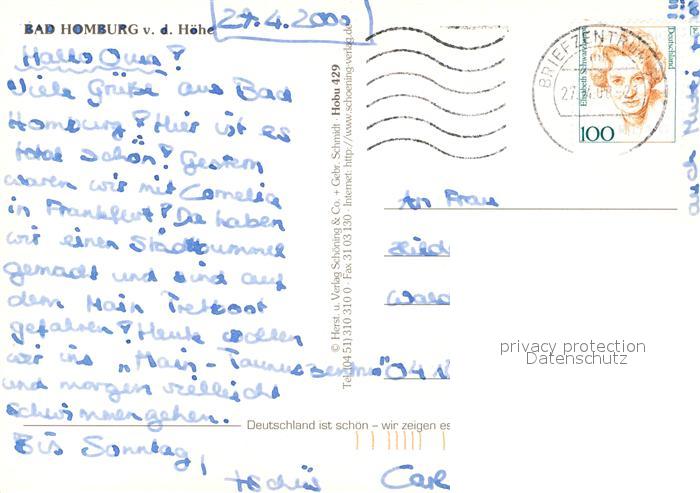 BAD HOMBURG v. d. Höhe
27.4.2000
Hallo Oma!
Viele Grüße aus Bad
Homburg! Hier ist es
total schön! Gestern
waren wir mit Cornelia
in Frankfurt! Da haben
wir einen Stadtbummel
gemacht und sind auf
dem Main Tretboot
gefahren! Heute wollen
wir ins "Main-Taunuszentrum"
und morgen vielleicht
schwimmen gehen.
Bis Sonntag,
tschüs
© Herst. u. Verlag Schöning & Co. + Gebr. Schmidt · Hobu 429
Tel. (04 51) 310 310 0 · Fax 31 03 130 · Internet: http://www.schoening-verlag.de
Deutschland ist schön – wir zeigen es
BRIEFZENTRUM
Elisabeth Schwarzhaupt
Deutschland
100
An Frau
privacy protection
Datenschutz